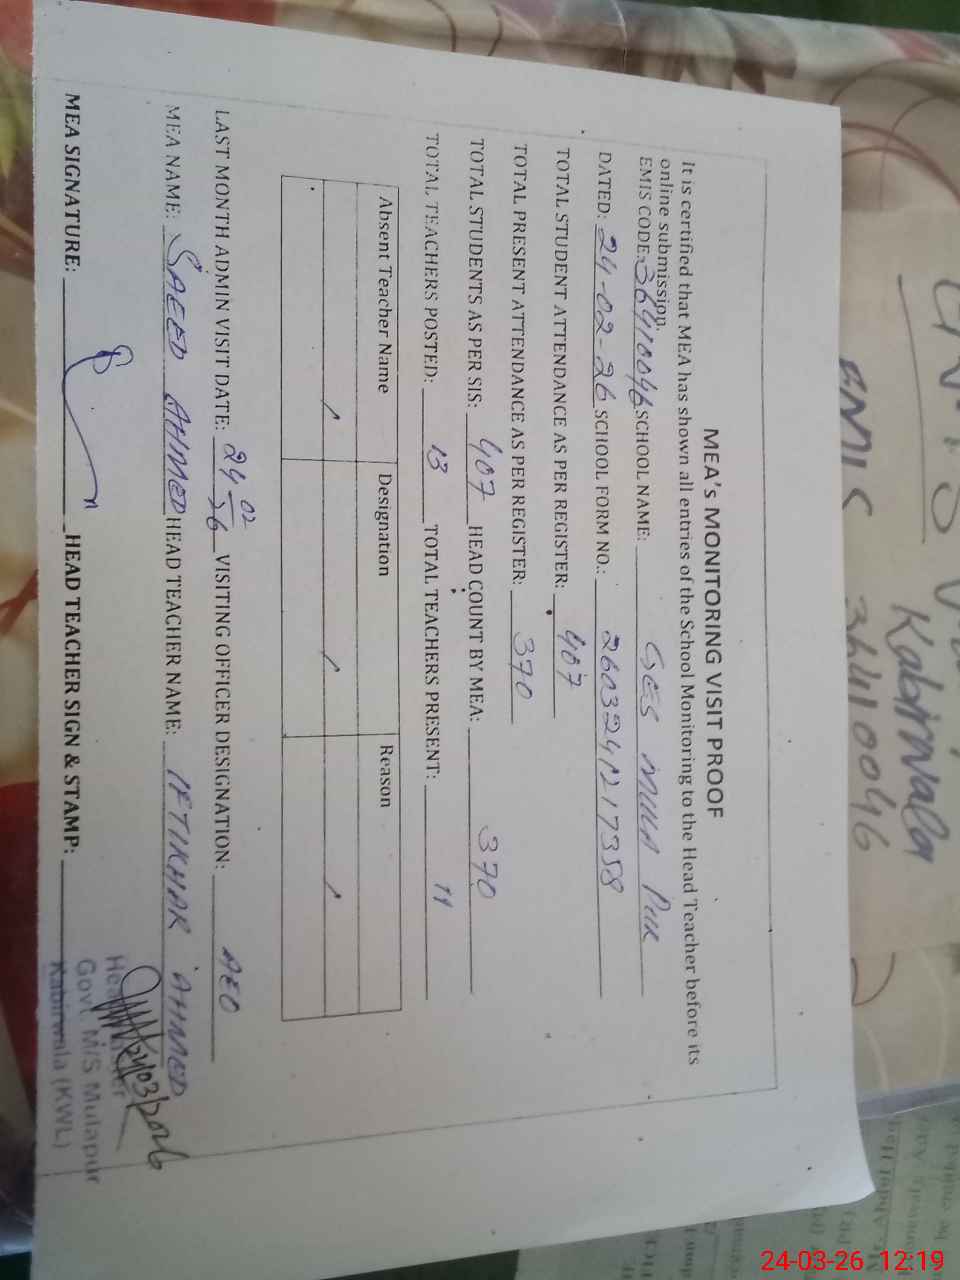 MEA's MONITORING VISIT PROOF
It is certified that MEA has shown all entries of the School Monitoring to the Head Teacher before its
online submission.
EMIS CODE: 36410046 SCHOOL NAME: GES MULA PUR
DATED: 24-02-26 SCHOOL FORM NO.: 2603241217358
TOTAL STUDENT ATTENDANCE AS PER REGISTER: 407
TOTAL PRESENT ATTENDANCE AS PER REGISTER: 370
TOTAL STUDENTS AS PER SIS: 407 HEAD COUNT BY MEA: 370
TOTAL TEACHERS POSTED: 13 TOTAL TEACHERS PRESENT: 11
Absent Teacher Name Designation Reason
LAST MONTH ADMIN VISIT DATE: 24 02 26 VISITING OFFICER DESIGNATION: AEO
MEA NAME: SAEED AHMED HEAD TEACHER NAME: IFTIKHAR AHMED
MEA SIGNATURE: HEAD TEACHER SIGN & STAMP:
24/03/2026
Govt. M/S Mulapur
Kabirwala (KWL)
Kabirwala
EMIS 36410046
24-03-26 12:19